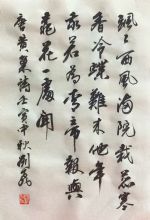 颯々西風滿院栽蕊寒
香冷蝶難來他年
我若為青帝報與
桃花一處開
唐黃巢詩壬寅中秋劉